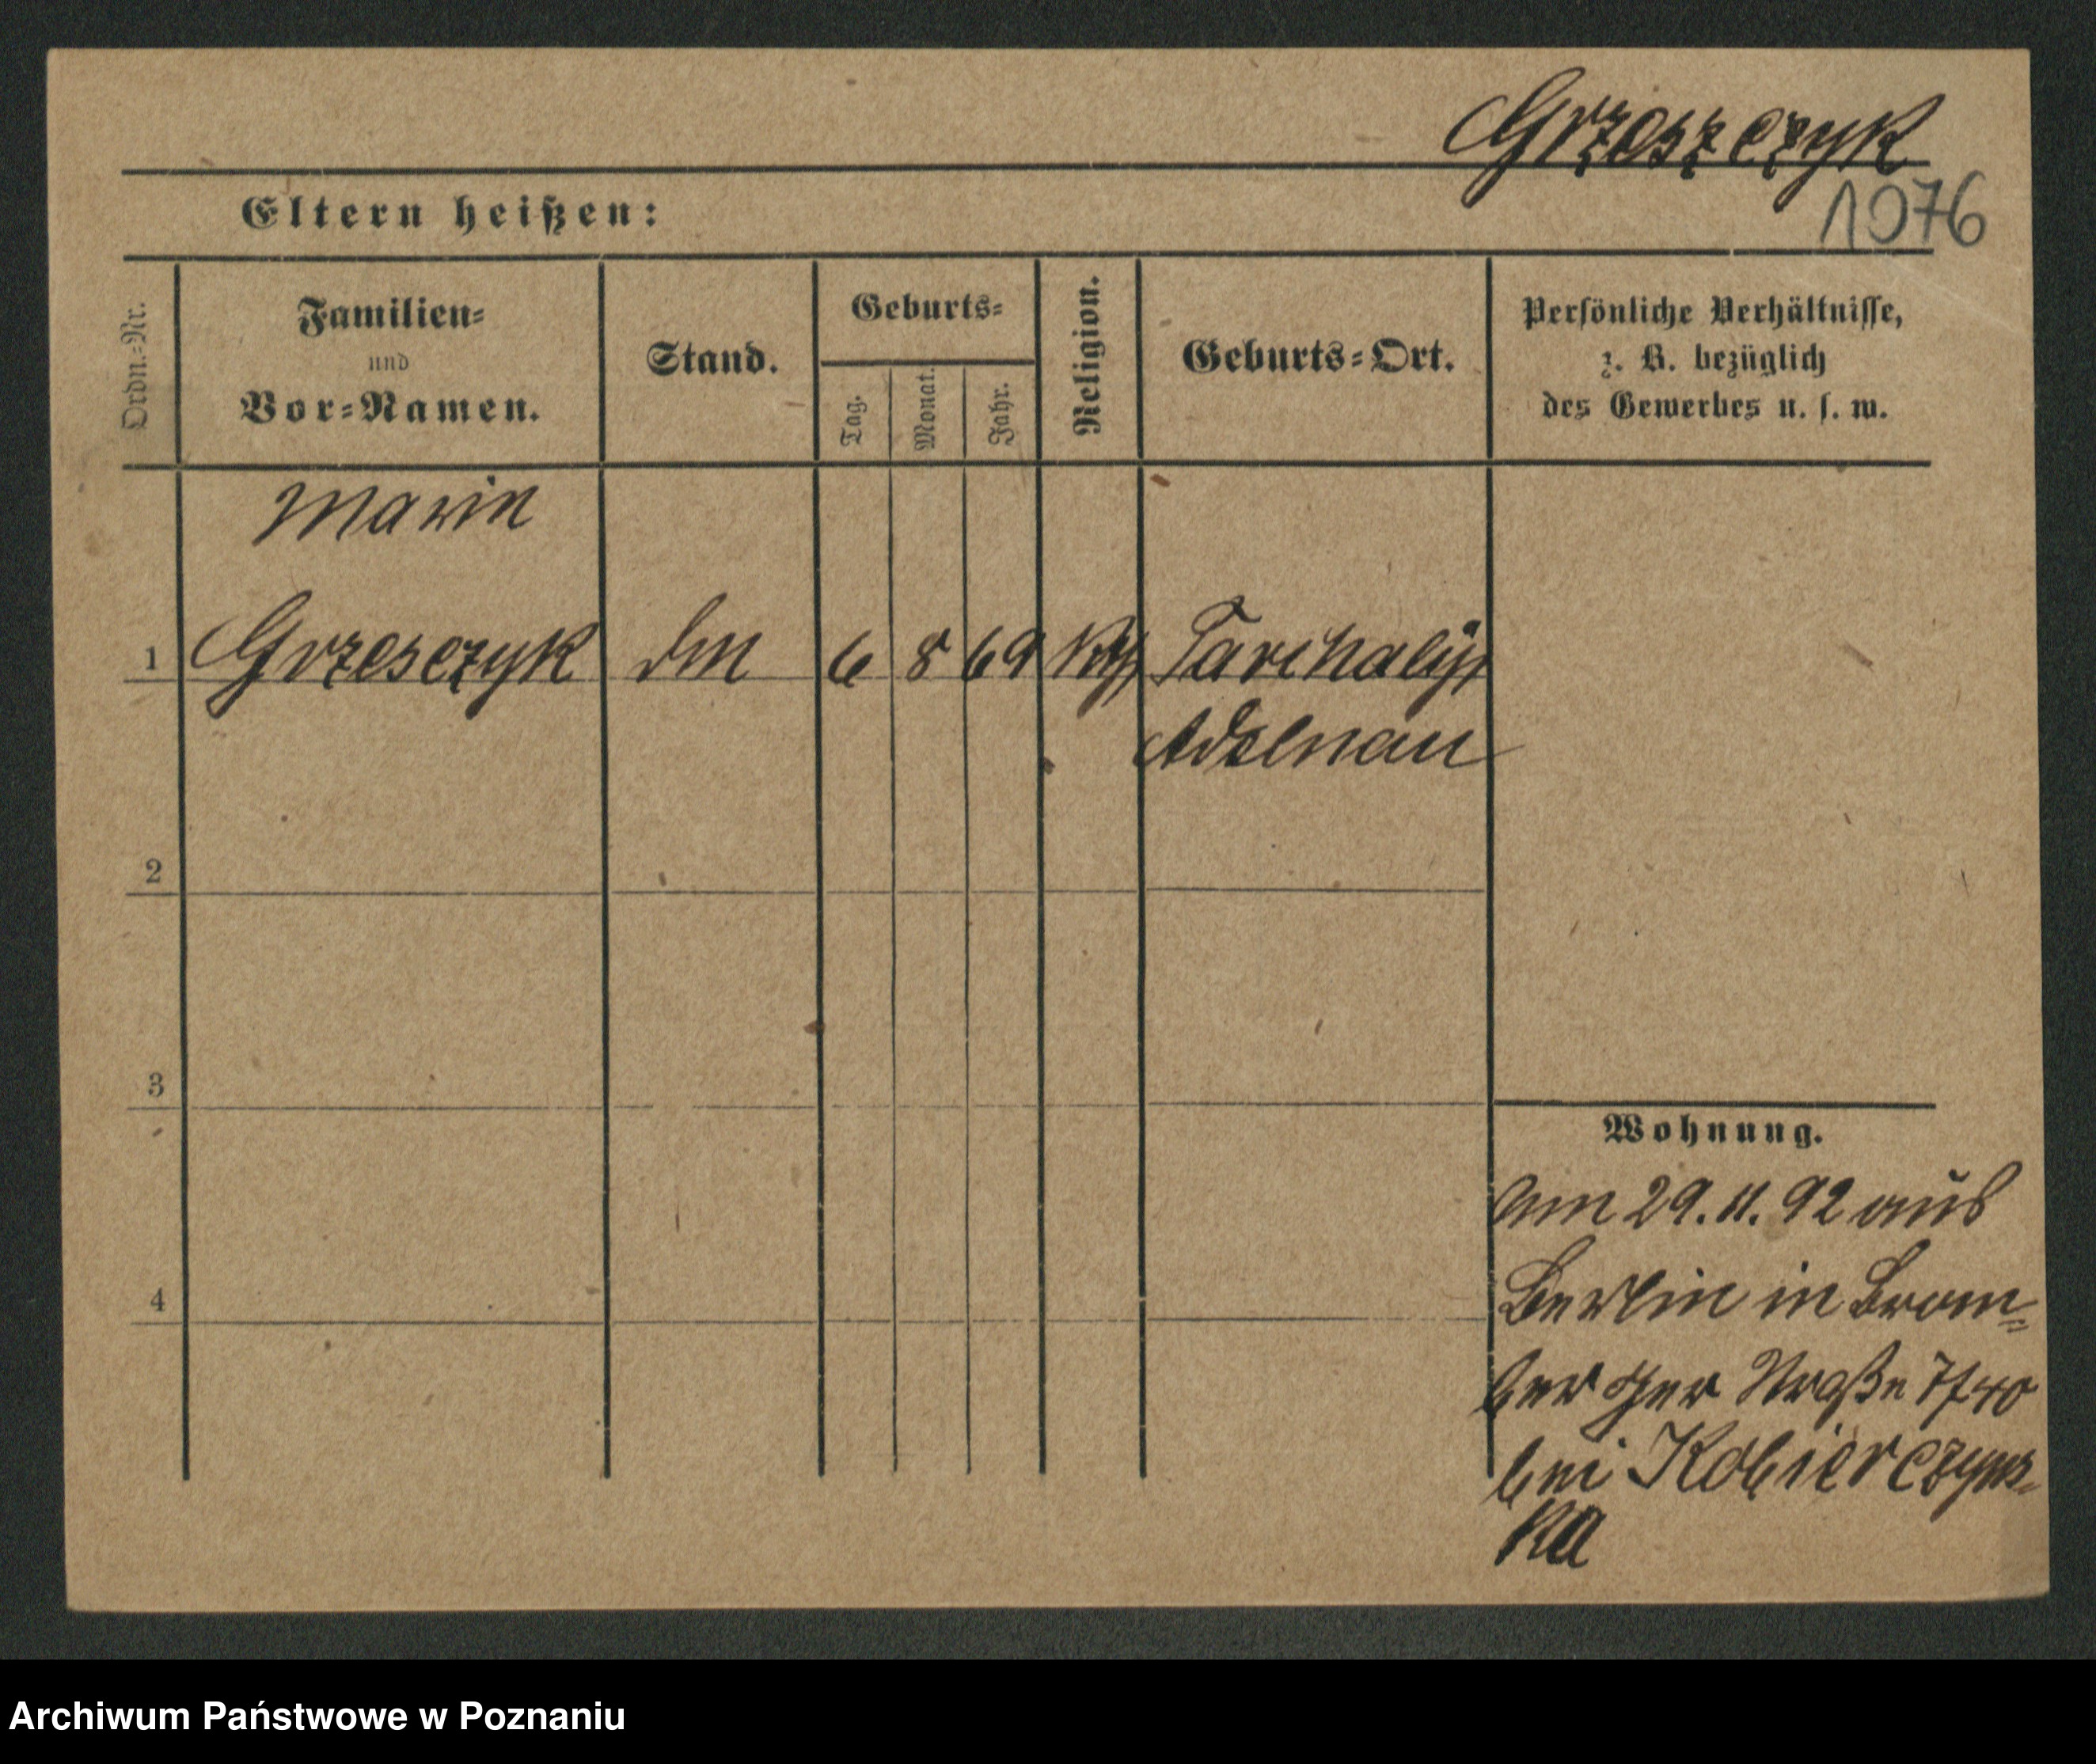 Grzeszczyk
1076
Eltern heißen:
Ordn.-Nr.
Familien-
und
Vor-Namen.
Stand.
Geburts-
Tag.
Monat.
Jahr.
Religion.
Geburts-Ort.
Persönliche Verhältnisse,
z. B. bezüglich
des Gewerbes u. s. w.
Marie
1 Grzesczyk 6 8 69 Kth
Adelnau
2
3
4
Wohnung.
Am 29. 11. 92 aus
Berlin in Brom-
berger Straße 40
bei Kobierczyns-
ka
Archiwum Państwowe w Poznaniu